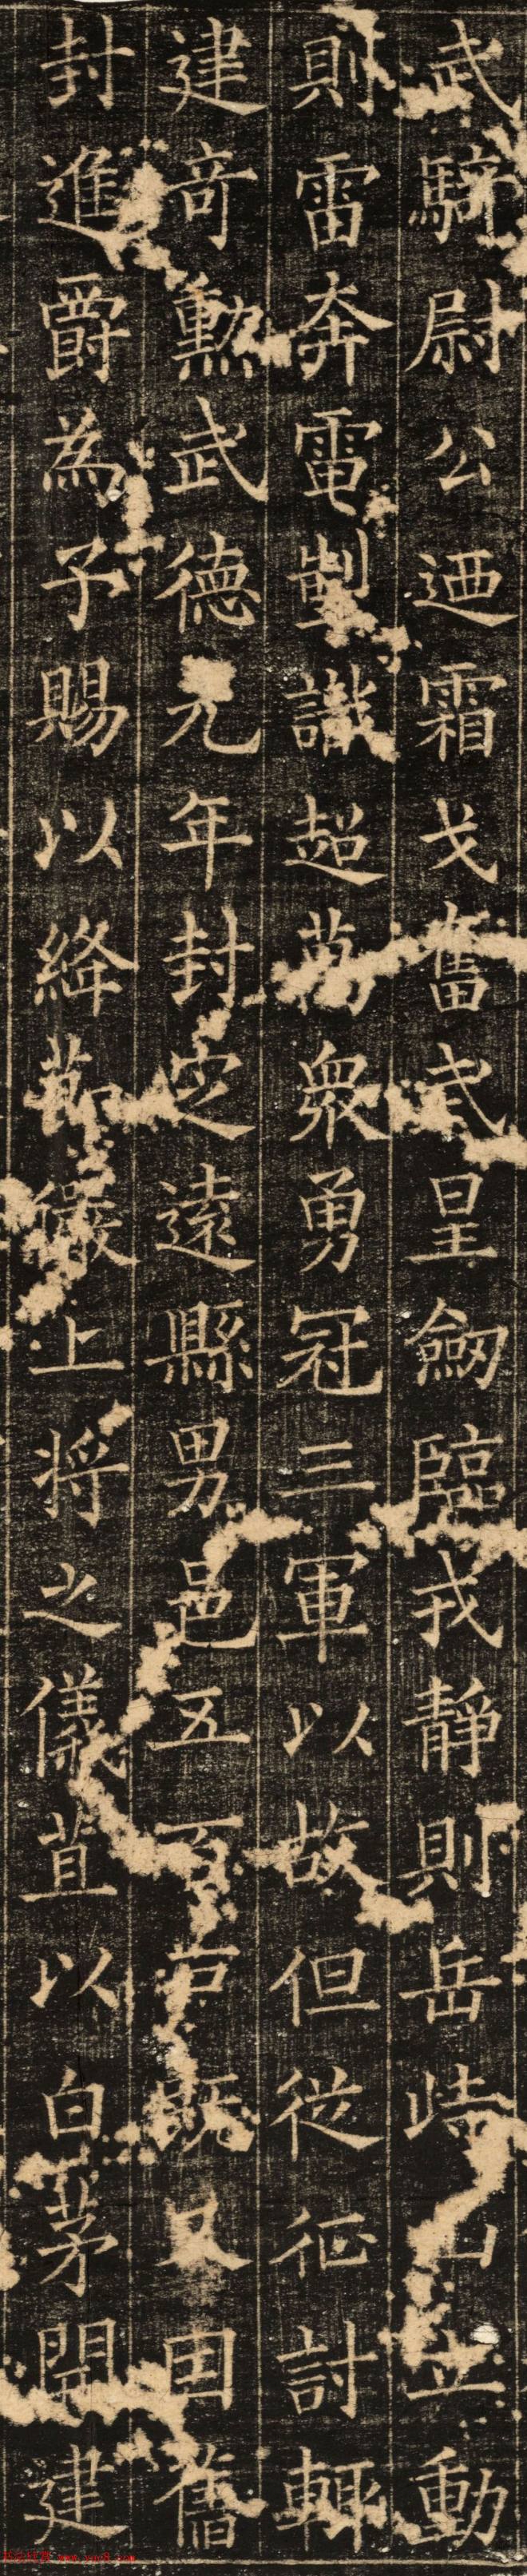 武騎尉公迺霜戈奮武星劒臨戎静則岳峙山立動
則雷奔電剬識超萬衆勇冠三軍以故但從征討輒
建奇勲武德九年封定遠縣男邑五百户既又因舊
封進爵為子賜以絳節儼上将之儀苴以白茅開建